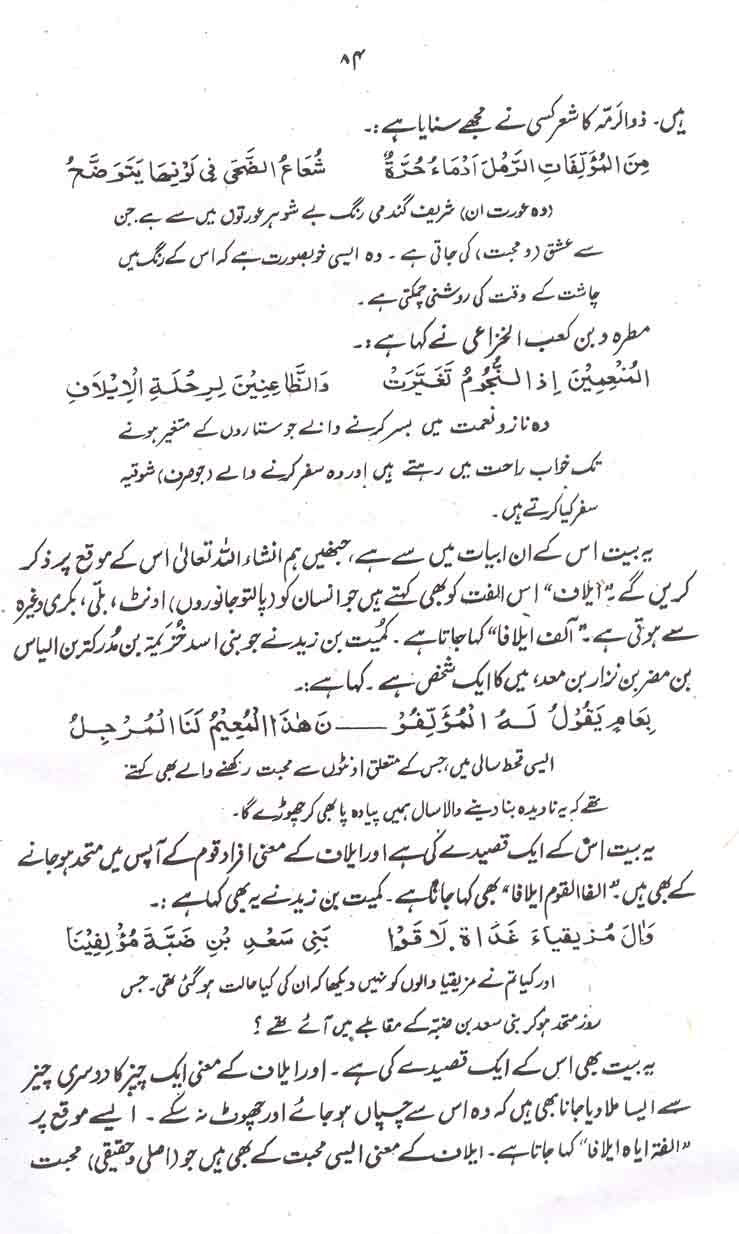 ۸۴
ہیں۔ ذوالرّمہ کا شعر کسی نے مجھے سنایا ہے :۔
مِنَ الْمُؤَلِّفَاتِ الرَّمْلَ اَدْمَاءُ حُرَّةٌ شُعَاعُ الضُّحَى فِي لَوْنِهَا يَتَوَضَّحُ
(وہ عورت ان) شریف گندمی رنگ بے شوہر عورتوں میں سے ہے جن
سے عشق (و محبت) کی جاتی ہے ۔ وہ ایسی خوبصورت ہے کہ اس کے رنگ میں
چاشت کے وقت کی روشنی چمکتی ہے ۔
مطرود بن کعب الخزاعی نے کہا ہے :۔
الْمُنْعِمِيْنَ اِذِ النُّجُوْمُ تَغَيَّرَتْ وَالظَّاعِنِيْنَ لِرِحْلَةِ الْاِيْلَافِ
وہ ناز و نعمت میں بسر کرنے والے جو ستاروں کے متغیر ہونے
تک خواب راحت میں رہتے ہیں اور وہ سفر کرنے والے (جو صرف) شوقیہ
سفر کیا کرتے ہیں ۔
یہ بیت اس کے ان ابیات میں سے ہے ، جنھیں ہم انشاء اللہ تعالیٰ اس کے موقع پر ذکر
کریں گے ۔ "ایلاف" اس الفت کو بھی کہتے ہیں جو انسان کو (پالتو جانوروں) اونٹ ، بلّی ، بکری وغیرہ
سے ہوتی ہے ۔ "آلف ایلافا" کہا جاتا ہے ۔ کمُیت بن زید نے جو بنی اسد خُزیمۃ بن مُدرکتہ بن الیاس
بن مضر بن نزار بن معد ، میں کا ایک شخص ہے ۔ کہا ہے :۔
بِعَامٍ يَقُوْلُ لَهُ الْمُؤَلِّفُوْ ــــ نَ هٰذَا الْمُعِيْمُ لَنَا الْمُرْجِلُ
ایسی قحط سالی میں ، جس کے متعلق اونٹوں سے محبت رکھنے والے بھی کہتے
تھے کہ یہ نادیدہ بنا دینے والا سال ہمیں پیادہ پا بھی کر چھوڑے گا ۔
یہ بیت اس کے ایک قصیدے کی ہے اور ایلاف کے معنی افراد قوم کے آپس میں متحد ہو جانے
کے بھی ہیں ۔ "الفا القوم ایلافا" بھی کہا جاتا ہے ۔ کمیت بن زید نے یہ بھی کہا ہے :۔
وَاٰلَ مُزَيْقِيَاءَ غَدَاةَ لَاقَوْا بَنِي سَعْدِ بْنِ ضَبَّةَ مُؤْلِفِيْنَا
اور کیا تم نے مزیقیا والوں کو نہیں دیکھا کہ ان کی کیا حالت ہو گئی تھی ۔ جس
روز متحد ہو کر بنی سعد بن ضبۃ کے مقابلے میں آئے تھے ؟
یہ بیت بھی اس کے ایک قصیدے کی ہے ۔ اور ایلاف کے معنی ایک چیز کا دوسری چیز
سے ایسا ملا دیا جانا بھی ہیں کہ وہ اس سے چسپاں ہو جائے اور چھوٹ نہ سکے ۔ ایسے موقع پر
"الفتہ ایاہ ایلافا" کہا جاتا ہے ۔ ایلاف کے معنی ایسی محبت کے بھی ہیں جو (اصلی و حقیقی) محبت